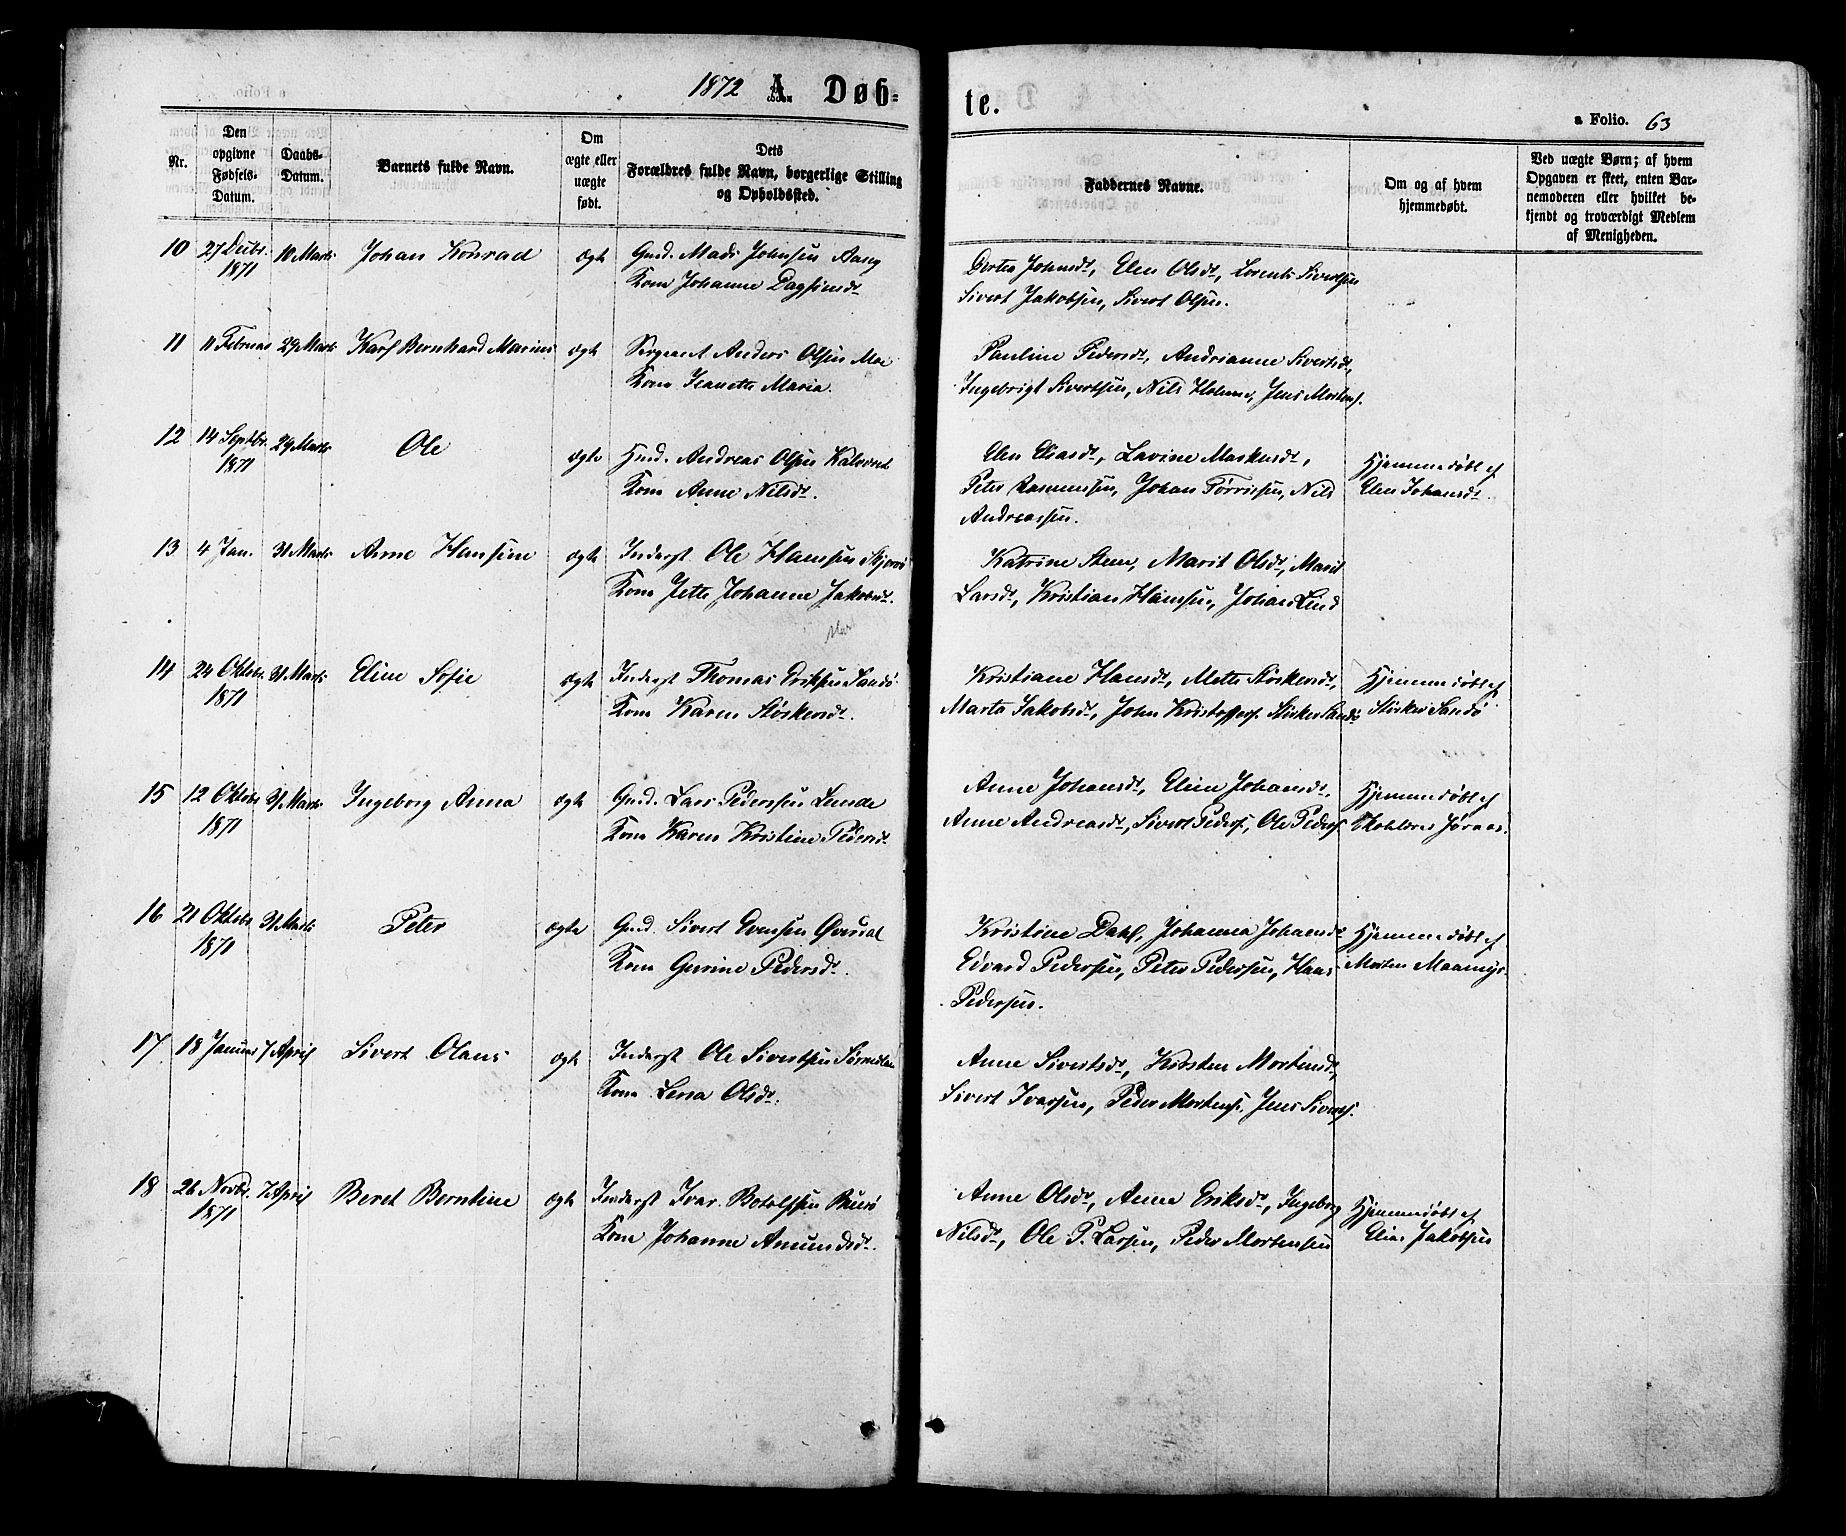 1872 A. Døb-
te.
a Folio. 63
Nr.
Den opgivne Fødsels-Datum.
Daabs-Datum.
Barnets fulde Navn.
Om ægte eller uægte født.
Dets Forældres fulde Navn, borgerlige Stilling og Opholdssted.
Faddernes Navne.
Om og af hvem hjemmedøbt.
Ved uægte Børn; af hvem Opgaven er skeet, enten Barnemoderen eller hvilket bekjendt og troværdigt Medlem af Menigheden.
10 27 Decbr. 10 Marts Johan Konrad ægte Gmd. Mads Johnsen
1871 Kone Johanne Dagfinsdt.
Johnsdt, Elen Olsdt, Lorents Sivertsen
Sivert Jakobsen, Sivert Olsen.
11 11 Februar 29 Marts Karl Bernhard Marius ægte Sergeant Anders Olsen Moe
Kone Jeanette Maria.
Pauline Pedersdt, Andrianne Sivertsdt,
Ingebrigt Sivertsen, Nils Holme, Jens Mortens.
12 14 Septbr. 29 Marts Ole ægte Hmd. Andreas Olsen
1871 Kone Anne Nilsdt.
Elen Eliasdt, Lavine Markusdt,
Peter Rasmussen, Johan Tørrissen, Nils
Andreassen.
Hjemmedøbt af
Elen Johansdt.
13 4 Jan. 31 Marts Anne Hansine ægte Inderst Ole Hanssen
Kone Jette Johanne Jakobsdt.
Katrine Steen, Marit Olsdt, Marit
Larsdt, Kristian Hansen, Johan Lind
14 24 Oktobr. 31 Marts Eline Sofie ægte Inderst Thomas Eriksen Sandø
1871 Kone Karen Størkersdt.
Kristiane Hansdt, Mette Størkersdt,
Marta Jakobsdt, John Kristoffers. Størker Sandø
Hjemmedøbt af
Størker Sandø
15 12 Oktobr 31 Marts Ingeborg Anna ægte Gmd. Lars Pedersen Lunde
1871 Kone Karen Kristine Pedersdt
Anne Johansdt, Elien Johansdt,
Anne Andreasdt, Sivert Peders, Ole Peders
Hjemmedøbt af
Skolelærer
16 21 Oktobr 31 Marts Peter ægte Gmd. Sivert Evensen
1871 Kone Gurine Pedersdt.
Kristine Dahl, Johanna Johansdt
Edvard Pedersen, Peter Pedersen, Haas
Pedersen.
Hjemmedøbt af
Morten
17 18 Januar 7 April Sivert Olaus ægte Inderst Ole Sivertsen
Kone Lena Olsdt.
Anne Sivertsdt, Kirsten Mortensdt,
Sivert Ivarsen, Peder Mortens. Jens Siverts.
18 26 Novbr. 7 April Beret Berntine ægte Inderst Ivar Botolfsen
1871 Kone Johanne Amundsdt.
Anne Olsdt, Anne Eriksdt, Ingeborg
Nilsdt, Ole P. Larsen, Peder Mortensen
Hjemmedøbt af
Elias Jakobsen